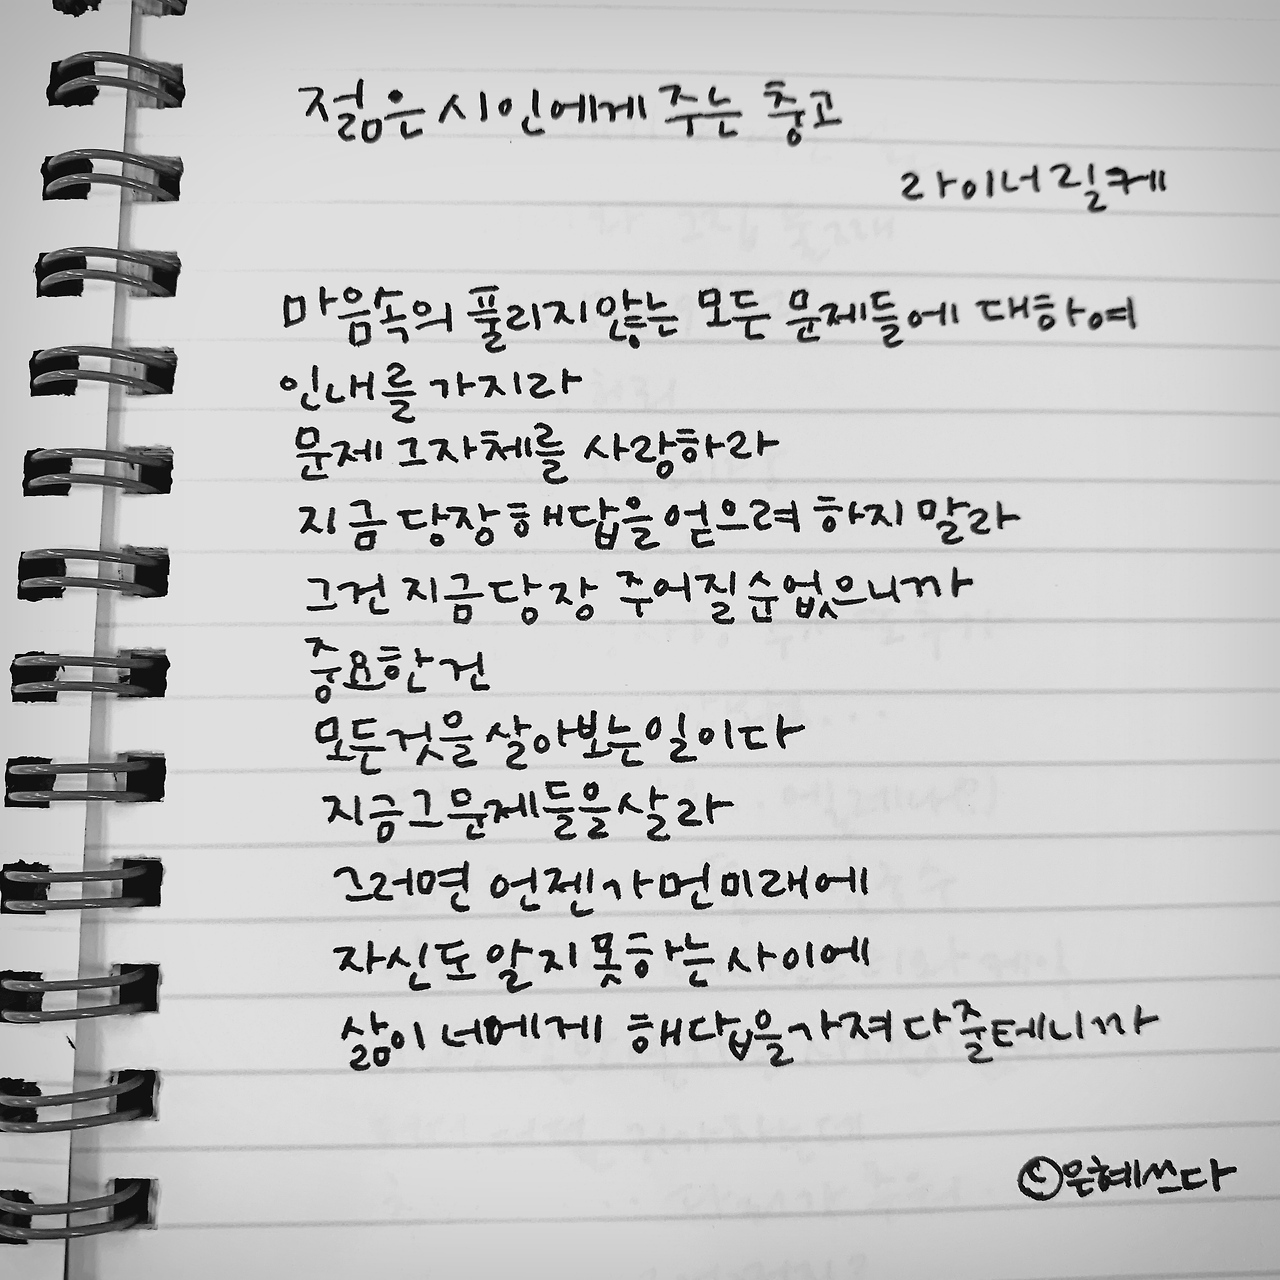 젊은 시인에게 주는 충고
라이너 릴케
마음속의 풀리지 않는 모든 문제들에 대하여
인내를 가지라
문제 그 자체를 사랑하라
지금 당장 해답을 얻으려 하지 말라
그건 지금 당장 주어질 순 없으니까
중요한 건
모든 것을 살아보는 일이다
지금 그 문제들을 살라
그러면 언젠가 먼 미래에
자신도 알지 못하는 사이에
삶이 너에게 해답을 가져다 줄테니까
©은혜쓰다